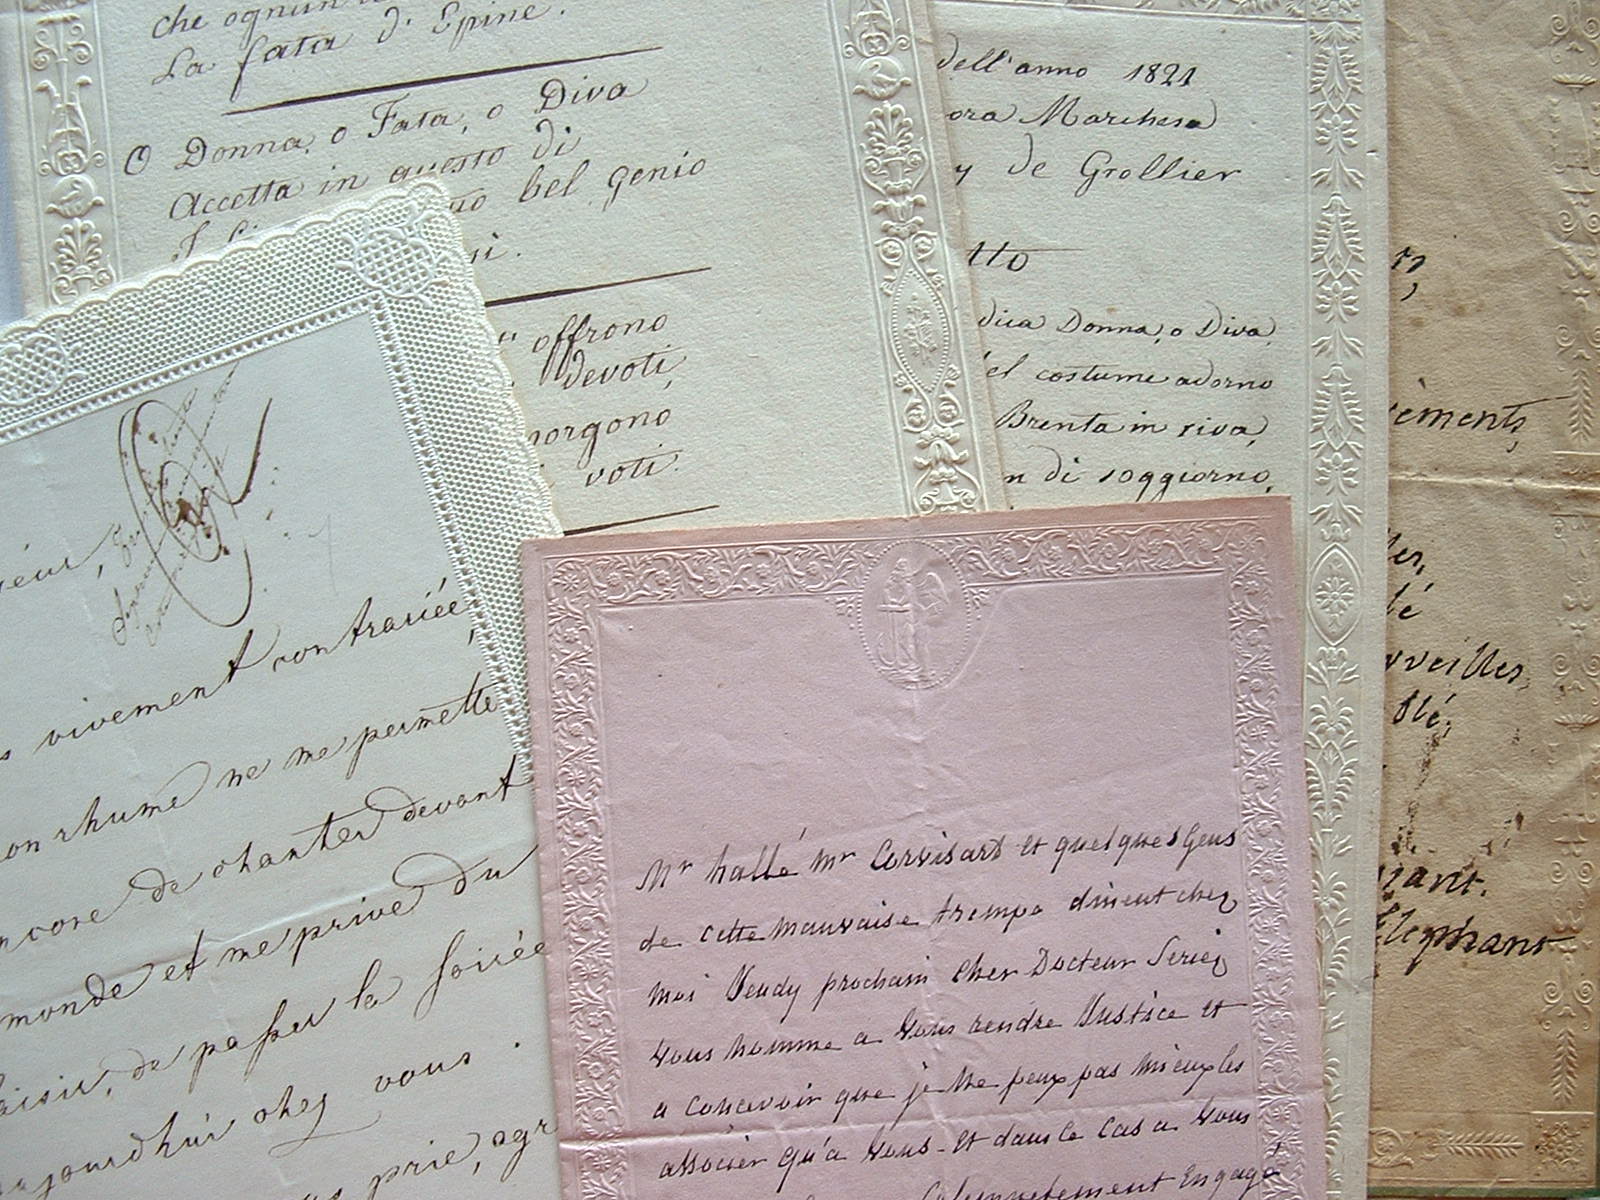 che ognun
La fata d' Spine.
O Donna, o Fata, o Diva
Accetta in questo di
bel genio
offrono
devoti,
voti.
dell'anno 1821
Marchesa
y de Grollier
dica Donna, o Diva,
el costume adorno
Brenta in riva,
n di soggiorno,
vivement contrariée
on rhume ne me permette
ncore de chanter devant
monde et me prive du
laisir, de passer la soirée
ujourd'hui chez vous.
prie, agr
Mr hallé Mr Corvisart et quelques Gens
de cette mauvaise trempe dinent chez
moi Jeudy prochain Cher Docteur Seriez
Vous homme a Vous rendre Justice et
a concevoir que je Ne peux pas mieux les
associer qu'a Vous. Et dans ce cas a Vous
Engagé
ements,
rveilles
blé,
Elephant